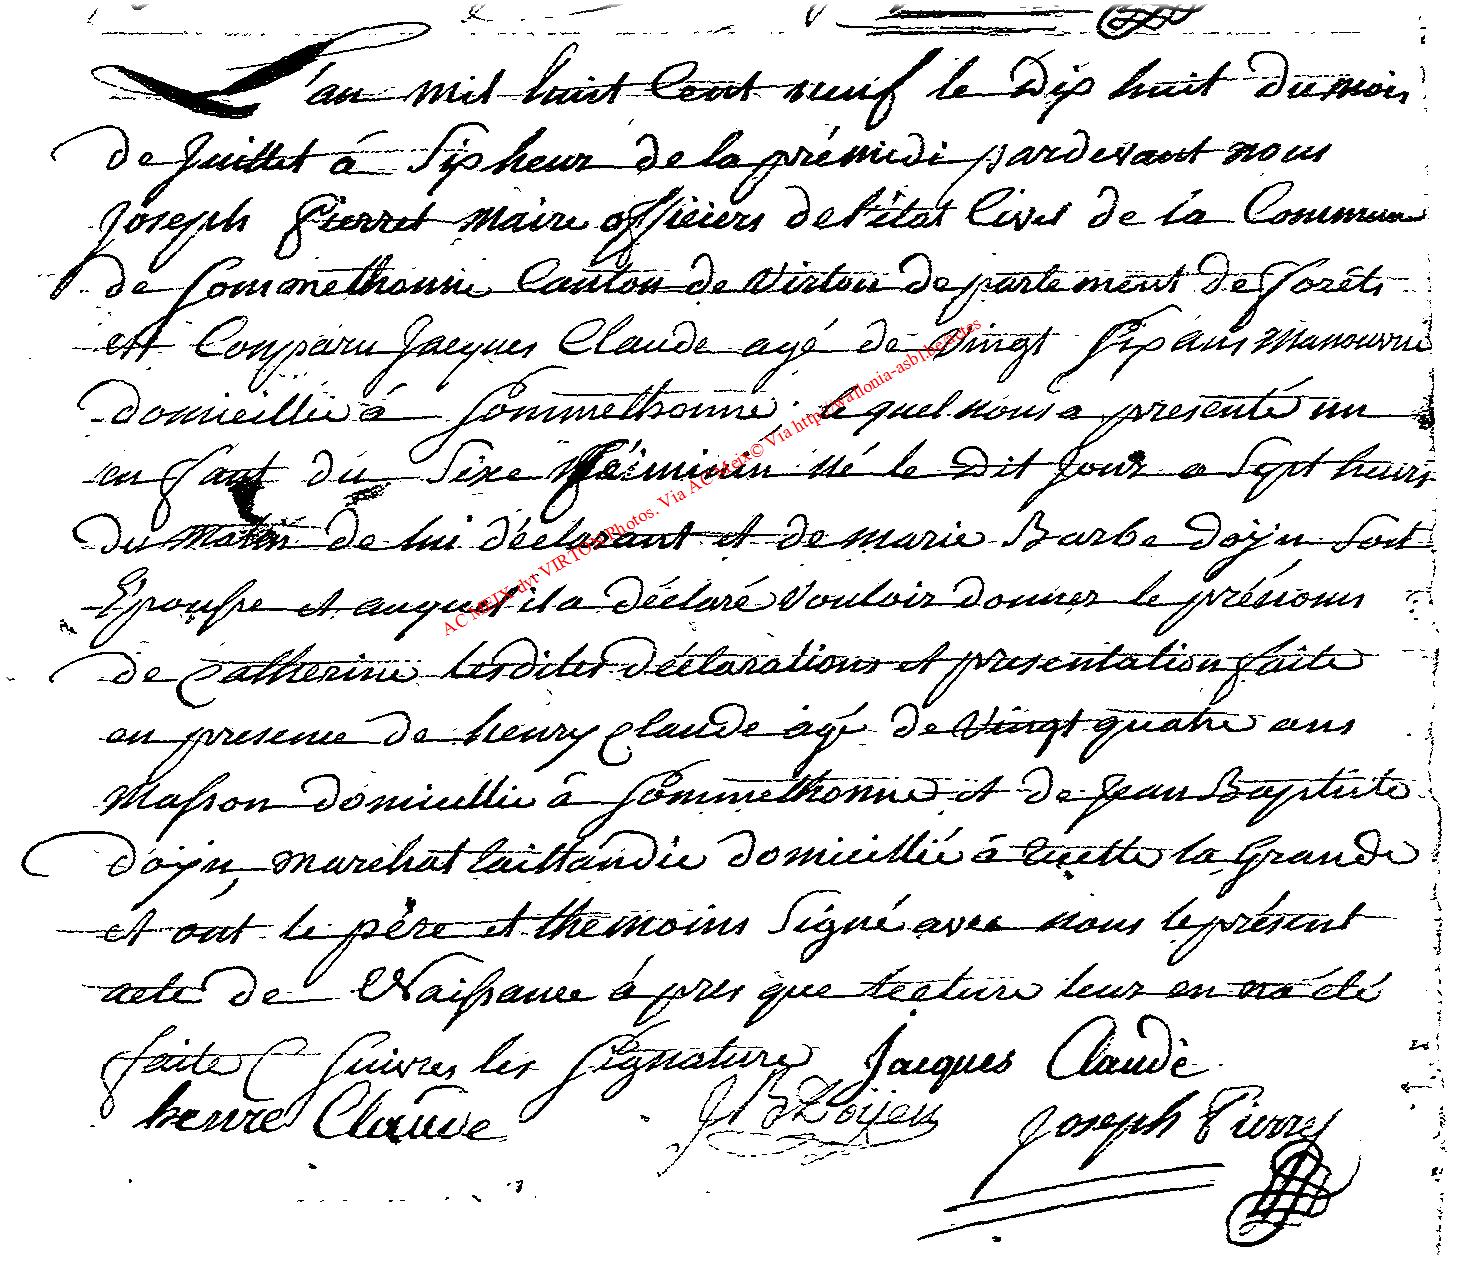 L'an mil huit Cent neuf le Dix huit Du mois
de Juillet à Six heur de la prémidi pardevant nous
Joseph Pierret Maire officiers de l'état Civil de la Commune
de Sommethonne Canton de Virton departement de forêts
est Comparu Jacques Claude agé de Vingt Six ans Manouvrie
domicillié à Sommethonne le quel nous a presenté un
enfant du Sexe féiminin né le dit Jour a Sept heurs
du Matin de lui déclarant et de marie Barbe doyn Son
Epousse et auquel il a déclaré Vouloir donner le prénoms
de Catherine lesdites déclarations et presentation faite
en presence de henry Claude agé de Vingt quatre ans
Masson domicillié à Sommethonne et de Jean Baptiste
doyn, marchat taillandie domicillié à la Grande
et ont le père et themoins Signé avec nous le présent
acte de Naissance à pres que lecture leur en na été
faite Suivres les Signature Jacques Claude
henre Claude JB Doyen Joseph Pierret
AC MEIX-dvt VIRTON Photos. Via AC Meix© Via http://wallonia-asbl.be/actes